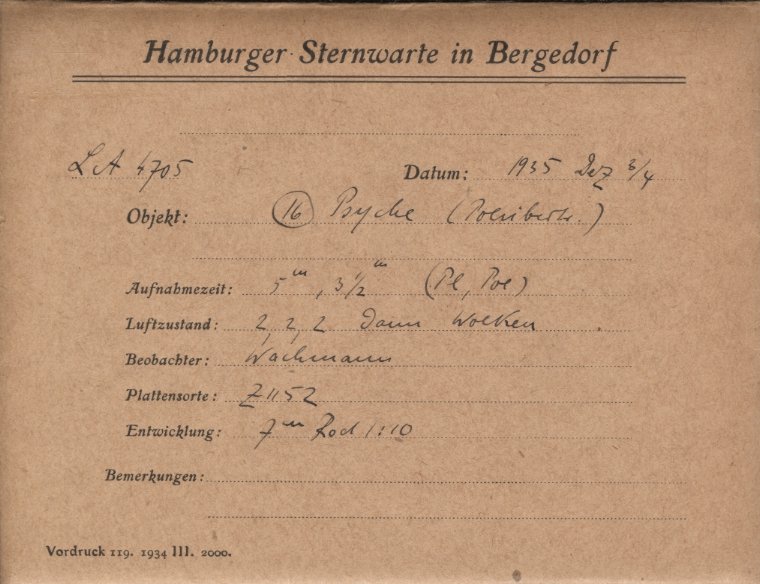 Hamburger Sternwarte in Bergedorf
LA 4705 Datum: 1935 Dez 3/4
Objekt: (16) Psyche (Polübertr.)
Aufnahmezeit: 5ᵐ, 3½ᵐ (Pl, Pol)
Luftzustand: 2, 2, 2 dann Wolken
Beobachter: Wachmann
Plattensorte: Z 1152
Entwicklung: 7ᵐ Rod 1:10
Bemerkungen:
Vordruck 119. 1934 III. 2000.